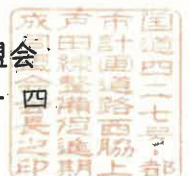 盟会
四
国道四二七号・都
市計画道路西脇上
戸田線整備促進期
成同盟会会長之印